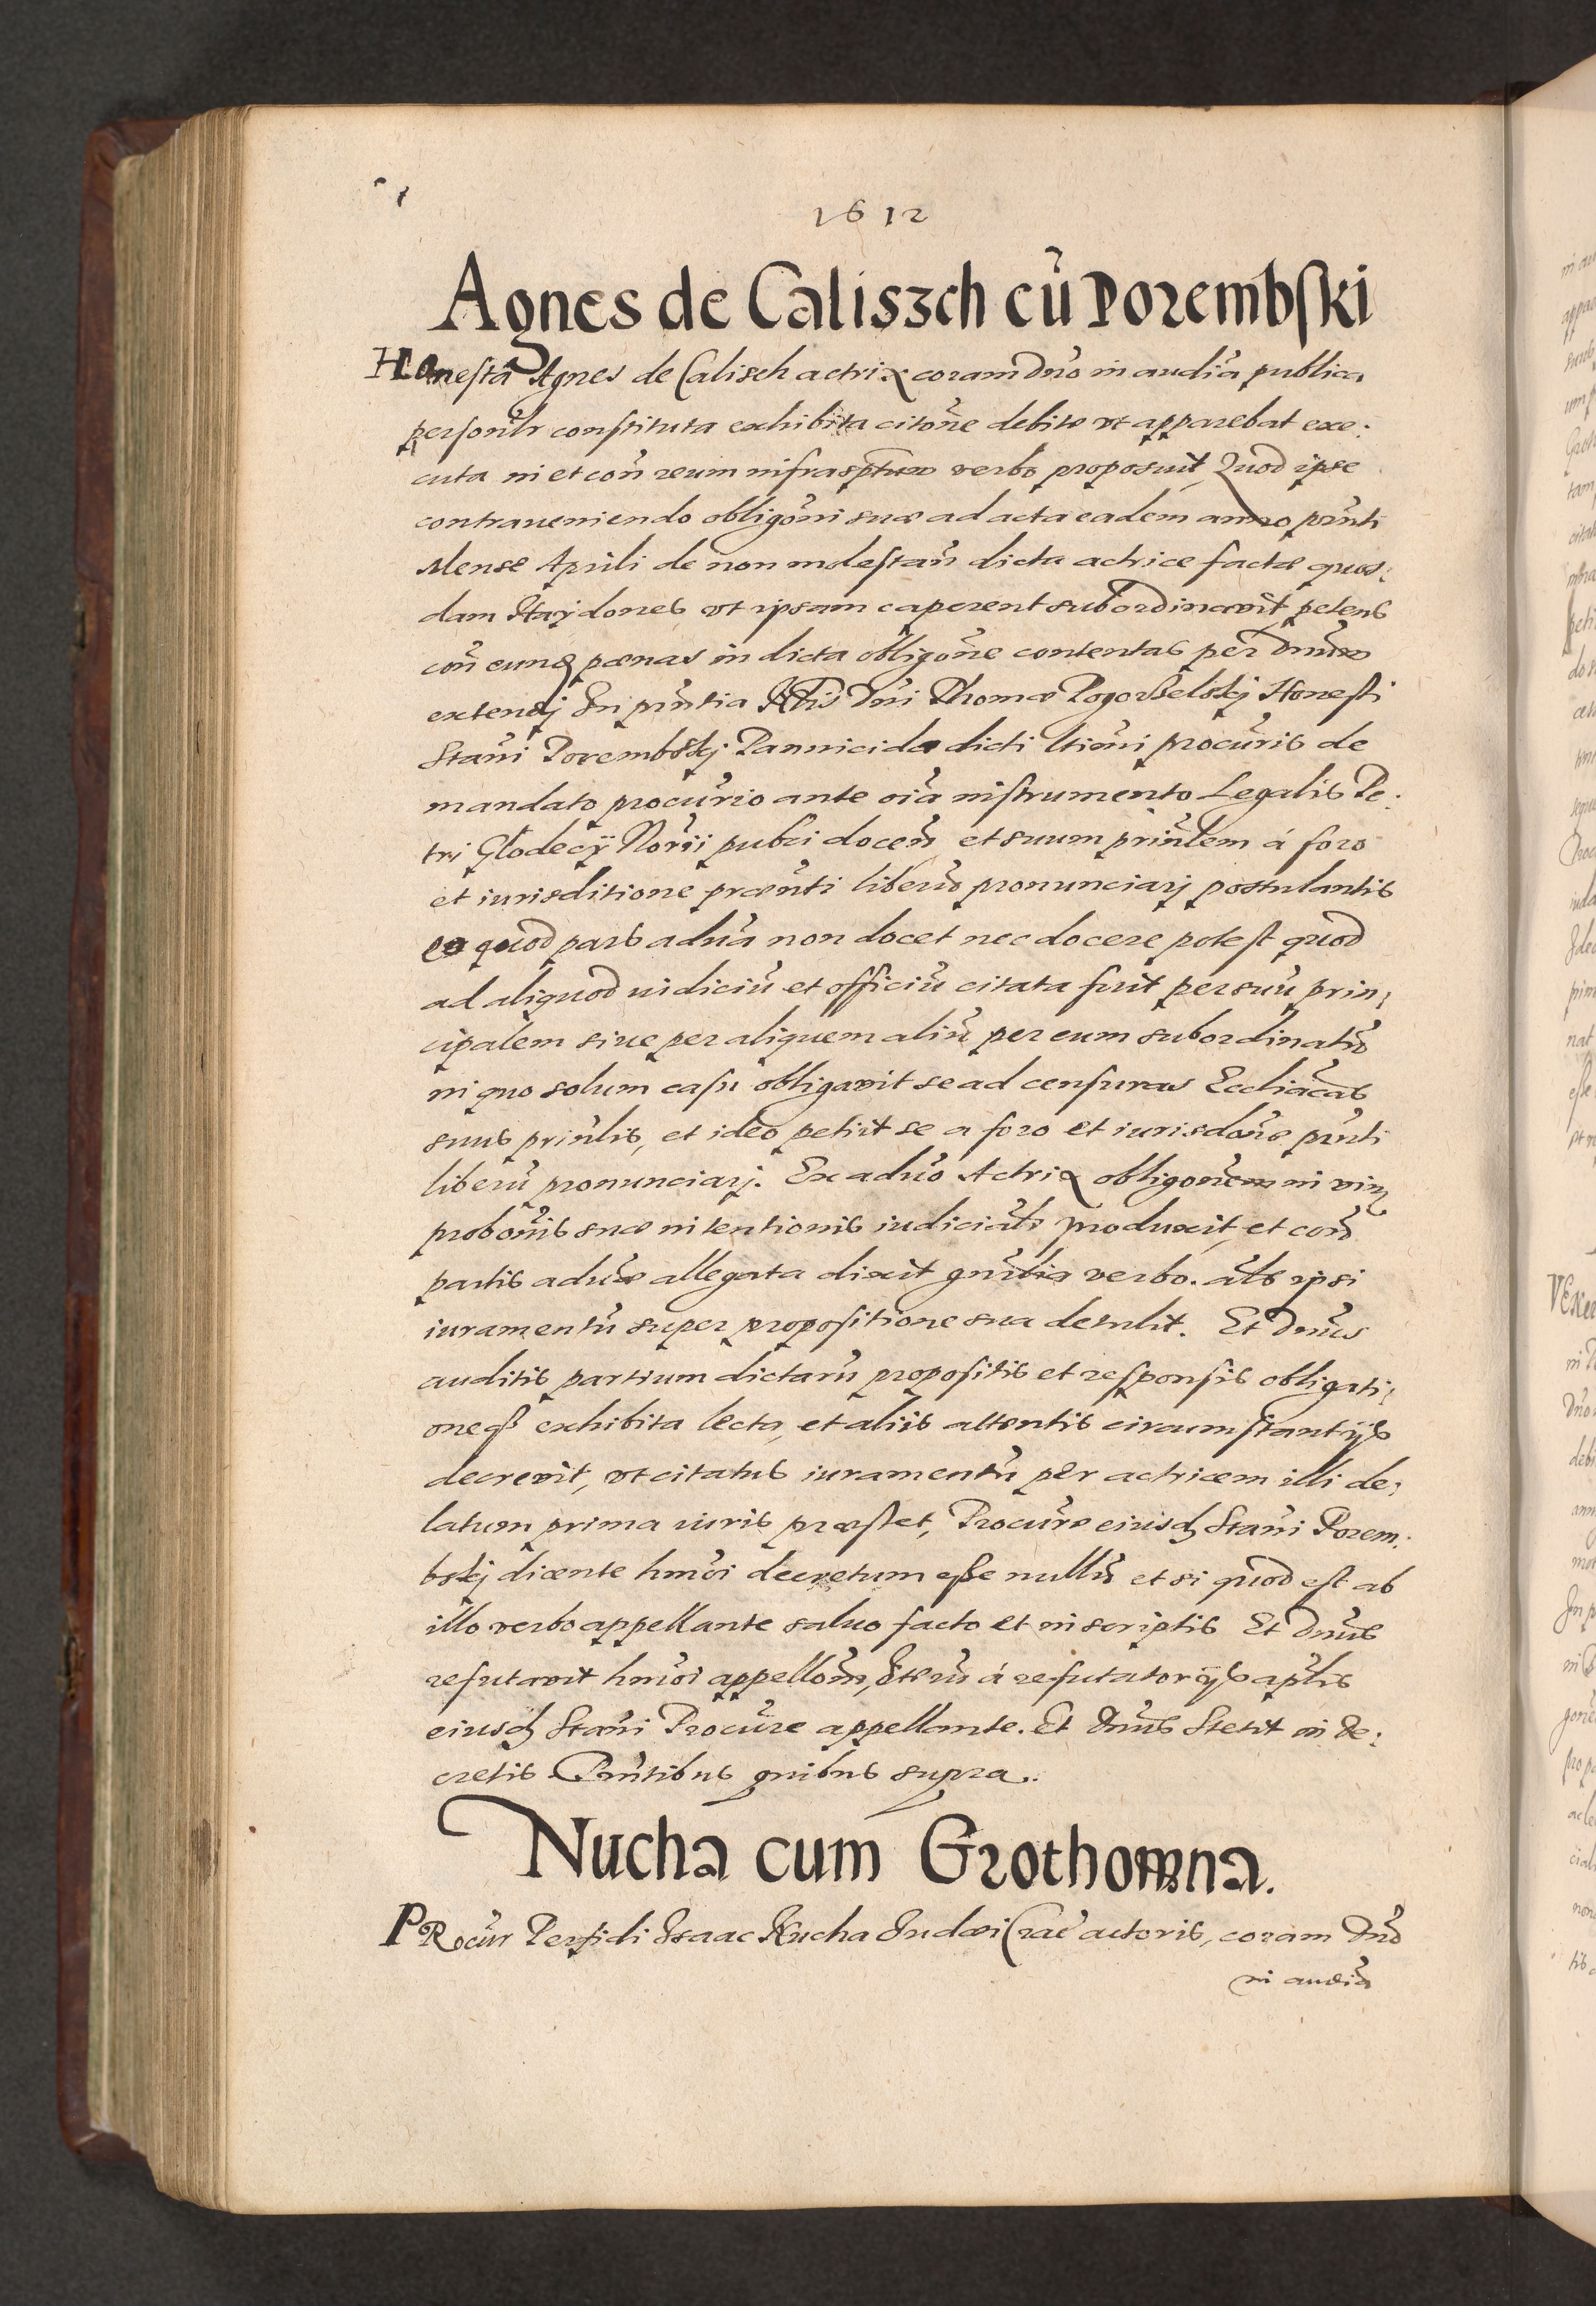 1612
Agnes de Caliszch cū Porembski
Honesta Agnes de Calisch actrix coram Dno in audia publica
personlr constituta exhibita citone debite vt apparebat exe:
cuta in et con reum infrasptum verbo proposuit, Quod ipse
contraueniendo obligoni suæ ad acta eadem anno pnti
Mense Aprili de non molestan dicta actrice factæ quos:
dam Haydones vt ipsam caperent subordinavit, petens
con eund pœnas in dicta obligone contentas per Dnum
extendj In pntia Dni Thomæ Pogorselskj Honesti
Stani Porembskj Pannicidæ dicti procuris de
mandato procurio ante oia instrumento Legalis Pe:
tri Glodecÿ Norii publi docen et suum prinlem á foro
et iurisditione præsnti liberū pronunciarj postulantis
eo quod pars adūa non docet nec docere potest quod
ad aliquod iudiciū et officiū citata fuit per suū prin:
cipalem siue per aliquem aliū per eum subordinatū
in quo solum casu obligavit se ad censuras Ecchiacas
suus prinlis, et ideo petiit se a foro et iurisdone pnti
liberū pronunciarj. Ex aduo Actrix obligonem in vim
probonis suæ intentionis iudicialr produxit, et con
partis aduæ allegata dixit gnrlia verbo. als ipsi
iuramentū super propositione sua detulit. Et Dnus
auditis partium dictarū propositis et responsis obligati:
oneqз exhibita lecta, et aliis attentis circumstantÿs
decrevit, vt citatus iuramentū per actricem illi de:
latum prima iuris præstet, Procure eiusd Stani Porem:
bskj dicente hmoi decretum esse nullū et si quod est ab
illo verbo appellante saluo facto et in scriptis Et Dnus
refutavit hmoi appellom, Iterū á refutatorÿs aplis
eiusd Stani Procure appellante. Et Dnus Stetit in de:
cretis Pntibus quibus supra.
Nucha cum Grothowna.
PRocur Perfidi Isaac Nucha Iudæi Crac actoris, coram Dno
in audia